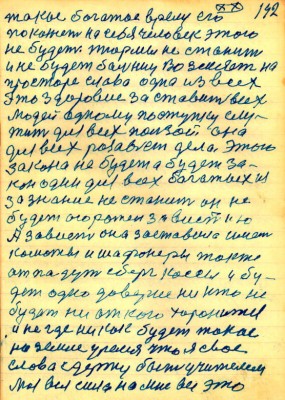 XX 192
такое богатое время его
покажет на себя человек этого
не будет. тюрмы не станит
и не будет болницы
просторе слова одна из всех
Это здоровие заставит всех
людей одному поступку слу-
жит для всех ползой она
для всех розавьет дела. Этого
закона не будет а будет за-
кон один для всех богатых из
за знание не станит он не
будет огорожен завистию
А зависть она заставила
комоты и шафонеры также
отпадут зберг кассы и бу-
дет одно доверие ни кто не
будит ни от кого хоронится
и не где никак будет такое
на земле уремя что я свое
слова здержу быть учителем
Моя вся сила на мне все это